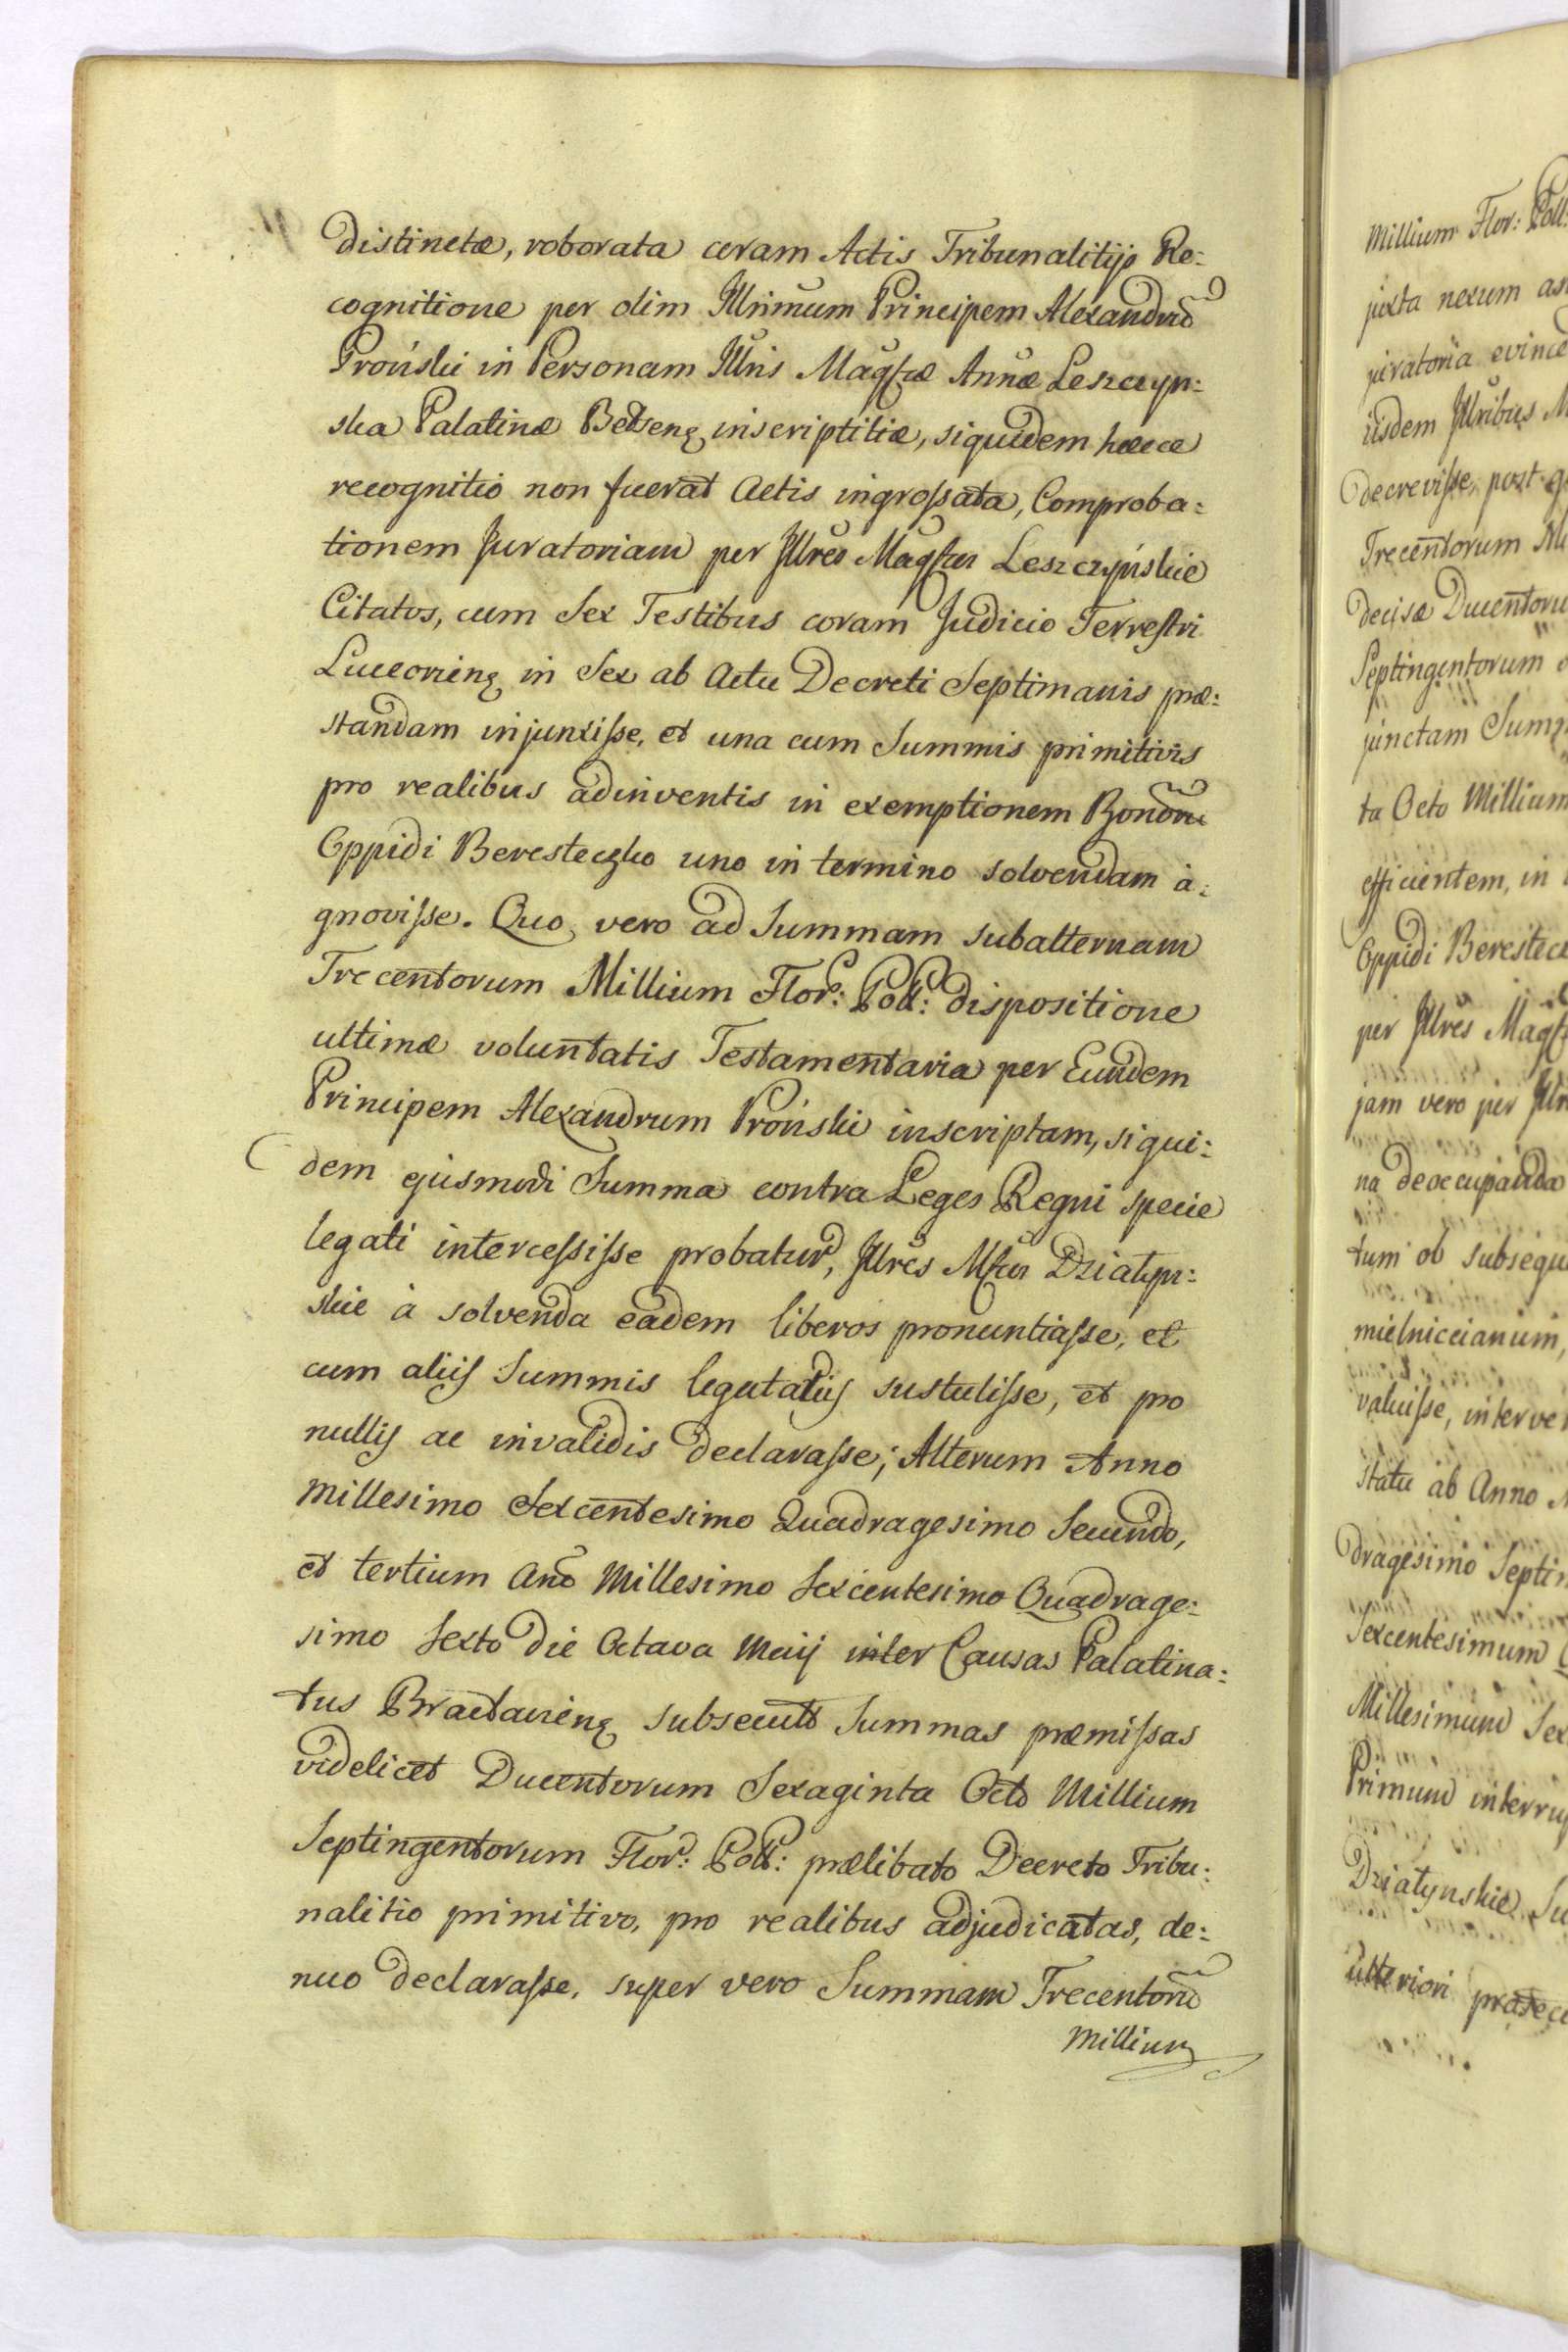 distinctæ, roborata coram Actis Tribunalitijs Re:
cognitione per olim Illrimum Principem Alexandrũ
Proński in Personam Illris Magfcæ Annæ Leszczyn:
ska Palatinæ Belzenę inscriptitiæ, siquidem hæcce
recognitio non fuerat Actis ingrossata, Comproba:
tionem Juratoriam per Illres Magfcos Leszczyńskie
Citatos, cum Sex Testibus coram Judicio Terrestri
Luceorienę in Sex ab Actu Decreti Septimanis præ:
standam injunxisse, et una cum Summis primitivis
pro realibus adinventis in exemptionem Bonorũ
Oppidi Beresteczko uno in termino solvendam à:
gnovisse. Quo vero ad Summam subalternam
Trecentorum Millium Flor: Poll: dispositione
ultimæ voluntatis Testamentaria per Eundem
Principem Alexandrum Proński inscriptam, siqui:
dem ejusmodi Summa contra Leges Regni specie
legati intercessisse probatur, Illres Mfcos Działyn:
skie à solvenda eadem liberos pronuntiasse, et
cum alijs Summis legatalijs sustulisse, et pro
nullis ac invalidis declarasse; Alterum Anno
Millesimo Sexcentesimo Quadragesimo Secundo,
et tertium Anõ Millesimo Sexcentesimo Quadrage:
simo Sexto die Octava Maij inter Causas Palatina:
tus Braclavienę subsecuto Summas præmissas
videlicet Ducentorum Sexaginta Octo Millium
Septingentorum Flor: Poll: prælibato Decreto Tribu:
nalitio primitivo, pro realibus adjudicatas, de:
nuo declarasse, super vero Summam Trecentorũ
Millium
Millium Flor: Poll:
juxta nexum
juratoria
iisdem Illribus
decrevisse, post
Trecentorum
decisa Ducentoru
Septingentorum
junctam Sum
ta Octo Millium
efficientem, in
Oppidi Berestec
per Illres Magfc
jam vero per
na deoccupanda
tum ob subsequ
mielnicianum,
valuisse, interve
statu ab Anno
dragesimo Septi
Sexcentesimum
Millesimum Sex
Primum interru
Działynskie
ulteriori